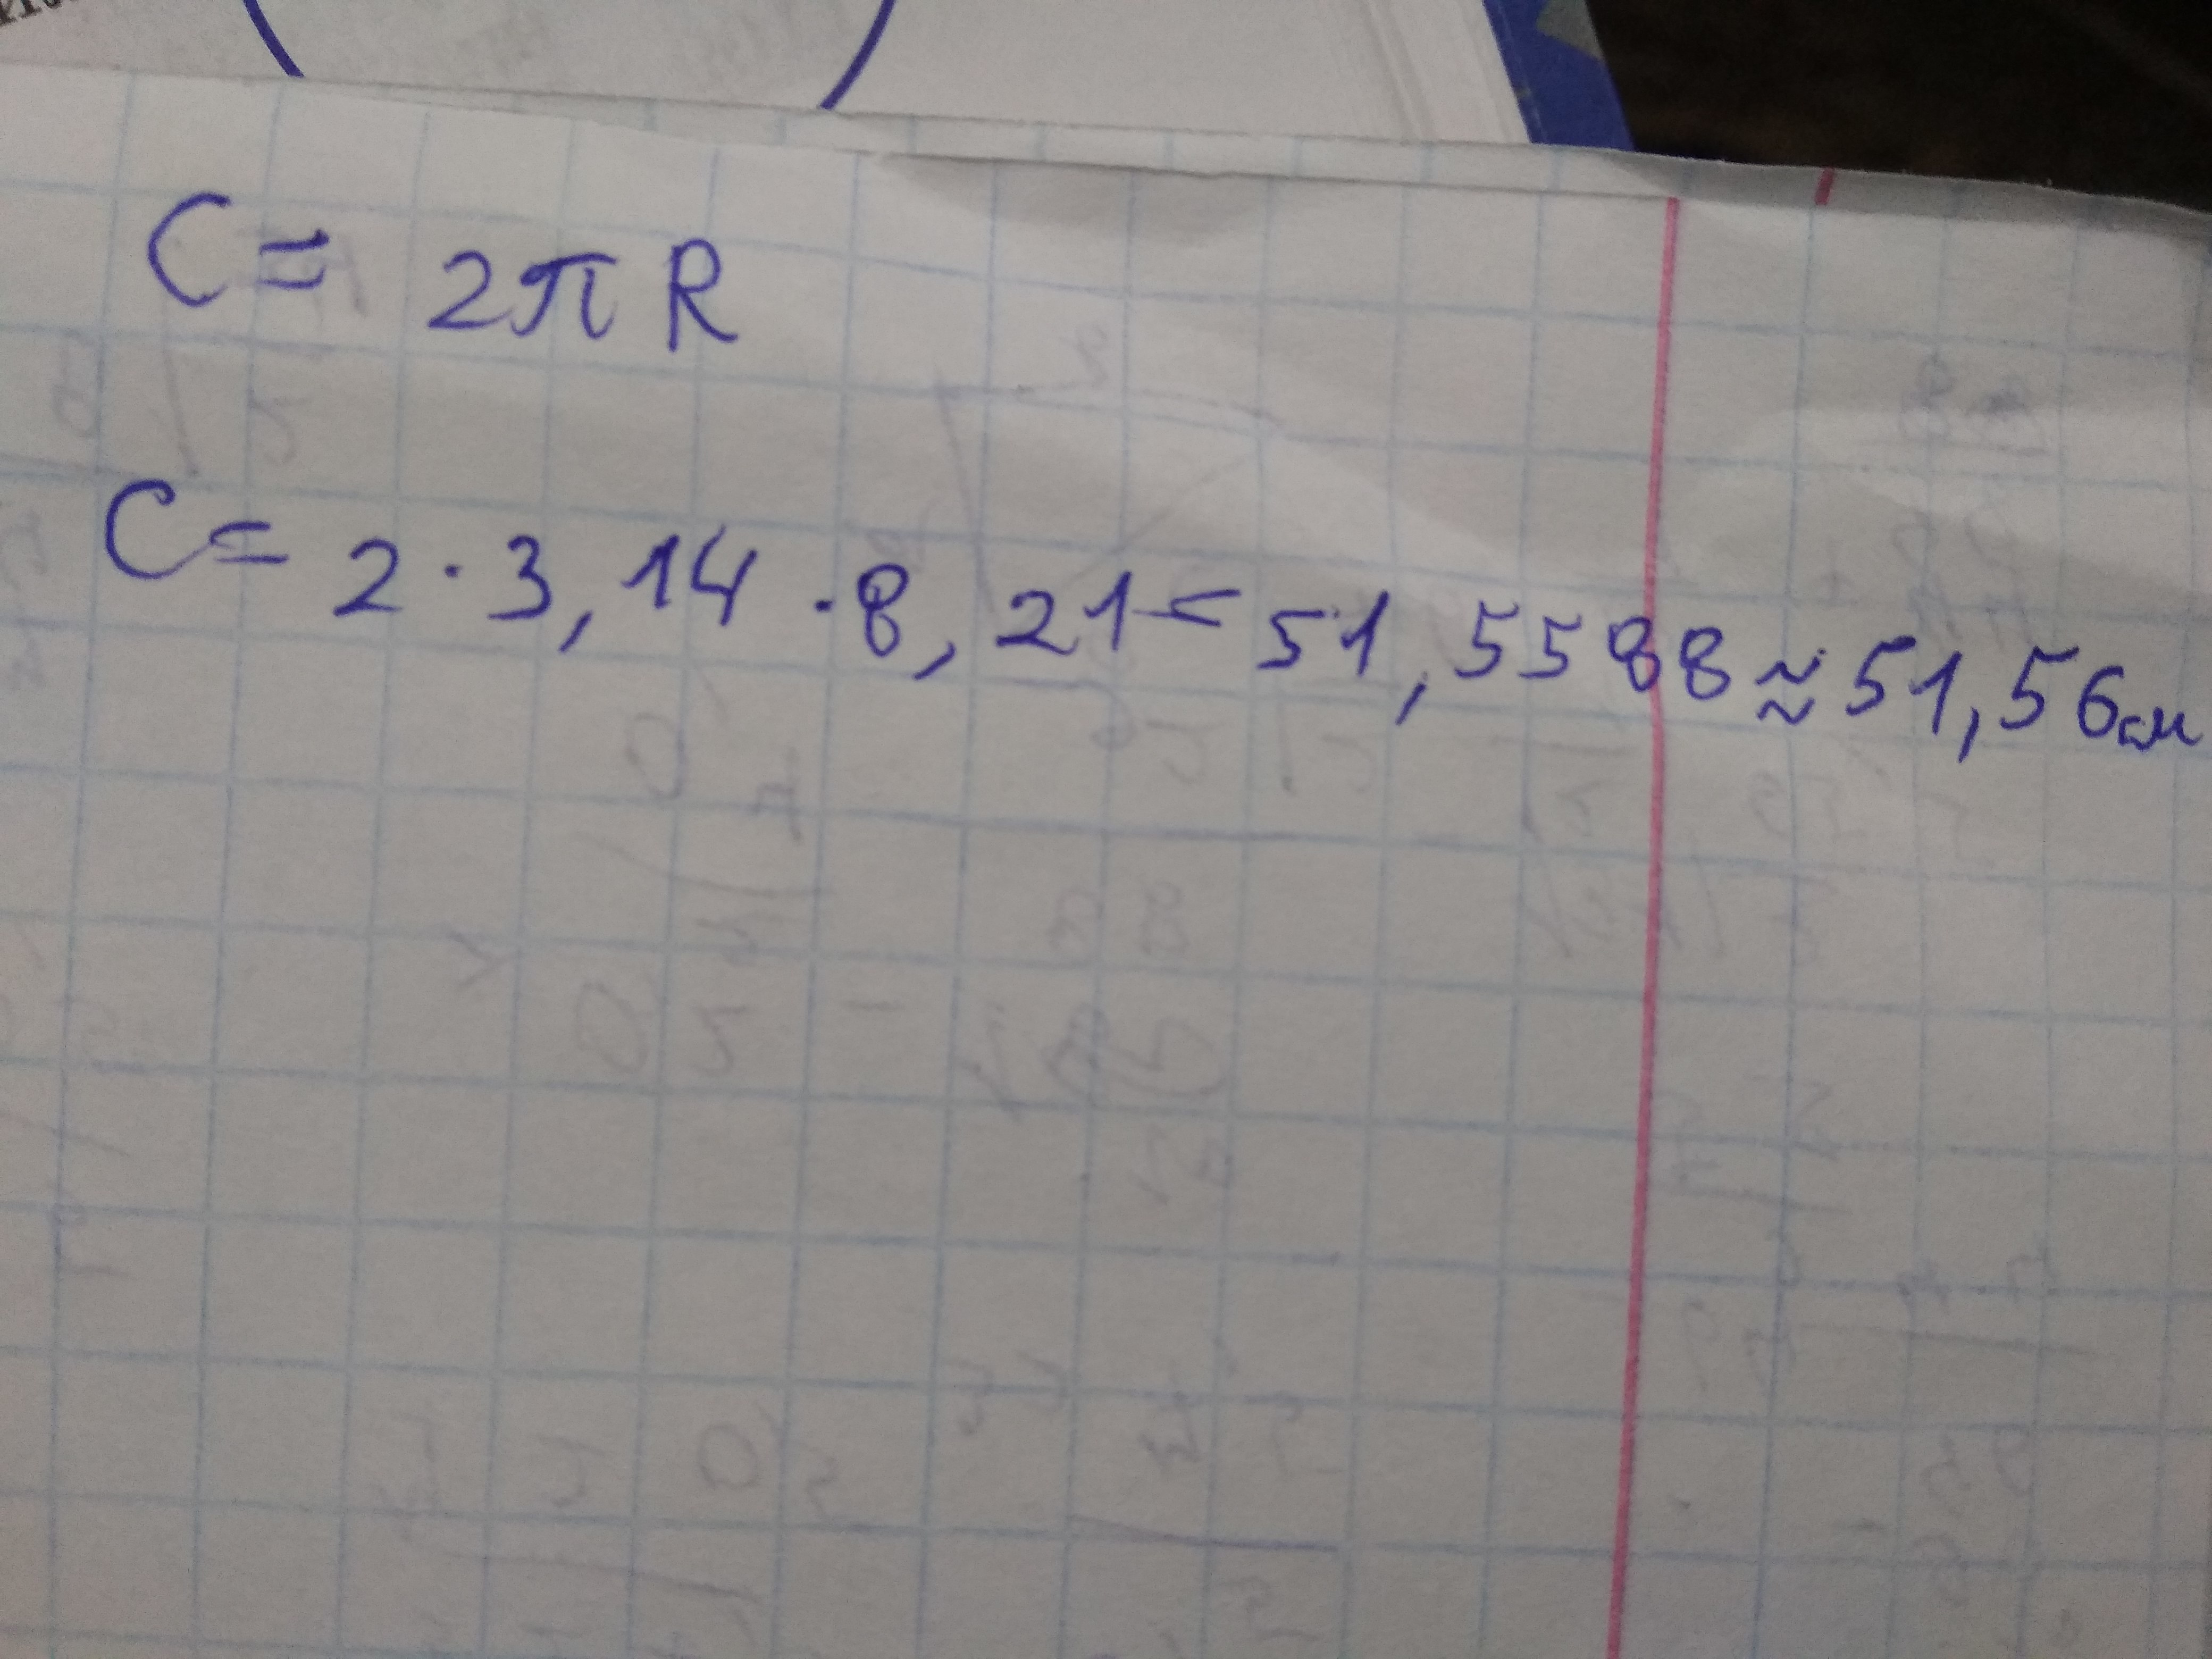 C = 2π R
C = 2 · 3,14 · 8,21 = 51,5588 ≈ 51,56 см